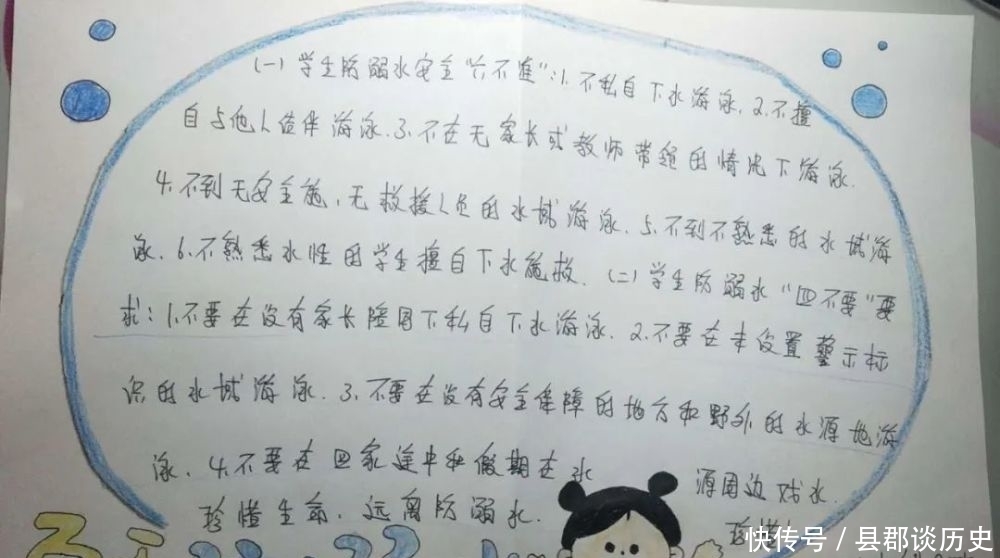 (一)学生防溺水安全"六不准":1.不私自下水游泳.2.不擅
自与他人结伴游泳.3.不在无家长或教师带领的情况下游泳.
4.不到无安全施,无救援人员的水域游泳.5.不到不熟悉的水域游
泳.6.不熟悉水性的学生擅自下水施救.(二)学生防溺水"四不要"要
求:1.不要在没有家长陪同下私自下水游泳.2.不要在未设置警示标
识的水域游泳.3.不要在没有安全保障的地方和野外的水源地游
泳.4.不要在回家途中和假期在水 源周边戏水.
珍惜生命.远离防溺水. 珍惜
快传号 / 县郡谈历史